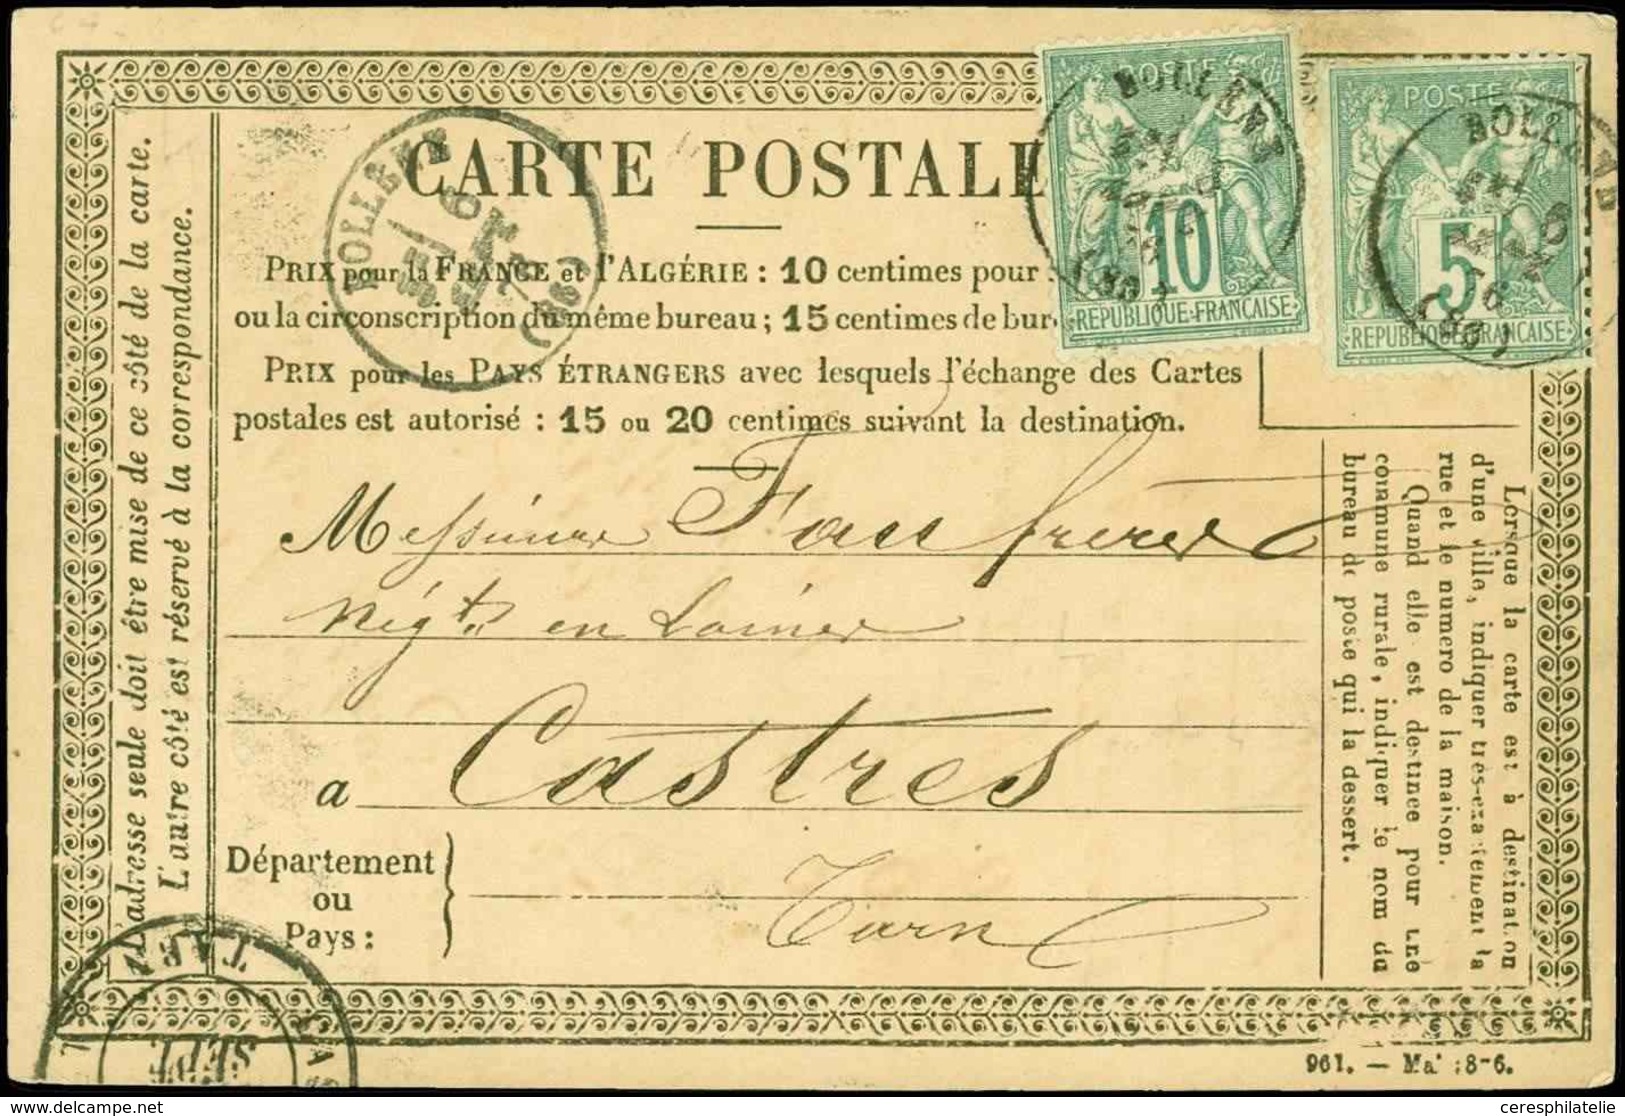 CARTE POSTALE
PRIX pour la FRANCE et l'ALGÉRIE : 10 centimes pour
ou la circonscription du même bureau ; 15 centimes de bur
PRIX pour les PAYS ÉTRANGERS avec lesquels l'échange des Cartes
postales est autorisé : 15 ou 20 centimes suivant la destination.
L'adresse seule doit être mise de ce côté de la carte.
L'autre côté est réservé à la correspondance.
POSTE
10
REPUBLIQUE-FRANÇAISE
POSTE
5
REPUBLIQUE FRANÇAISE
BOLLÈNE
6
(86)
BOLLÈNE
BOLLÈNE
6
76
Messieurs Fau frères
Négts en Laines
a Castres
Département
ou
Pays :
Tarn
Lorsque la carte est à destination
d'une ville, indiquer très-exactement la
rue et le numero de la maison.
Quand elle est destinée pour une
commune rurale, indiquer le nom du
bureau de poste qui la dessert.
TAR
CAS
SEPT
961. — Mai 1876.
delcampe.net
ceresphilatelie